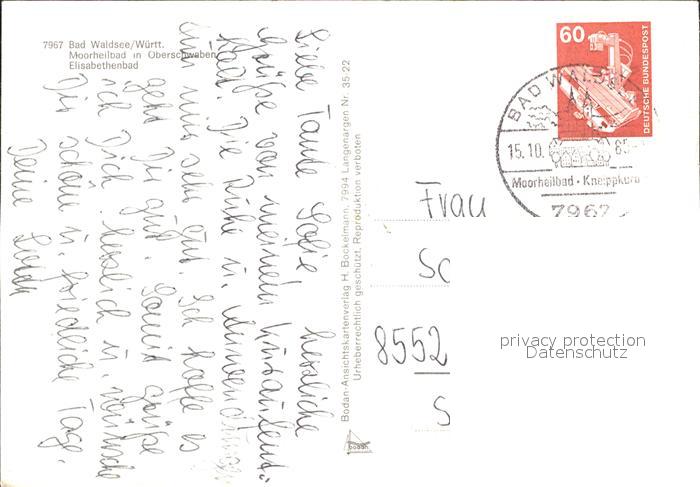 7967 Bad Waldsee/Württ.
Moorheilbad in Oberschwaben
Elisabethenbad
Liebe Tante Sofie, herzliche
Grüße von meinem Kuraufent-
halt. Die Ruhe u. Anwendungen
tun mir sehr gut. Ich hoffe es
geht Dir gut. Somit grüße
ich Dich herzlich u. wünsche
Dir schöne u. friedliche Tage.
Deine
Bodan-Ansichtskartenverlag H. Bockelmann, 7994 Langenargen Nr. 35-22
Urheberrechtlich geschützt, Reproduktion verboten
bodan
60
DEUTSCHE BUNDESPOST
BAD WALDS
15.10. 85
Moorheilbad · Kneippkuro
7967
Frau
Sc
8552
S
privacy protection
Datenschutz